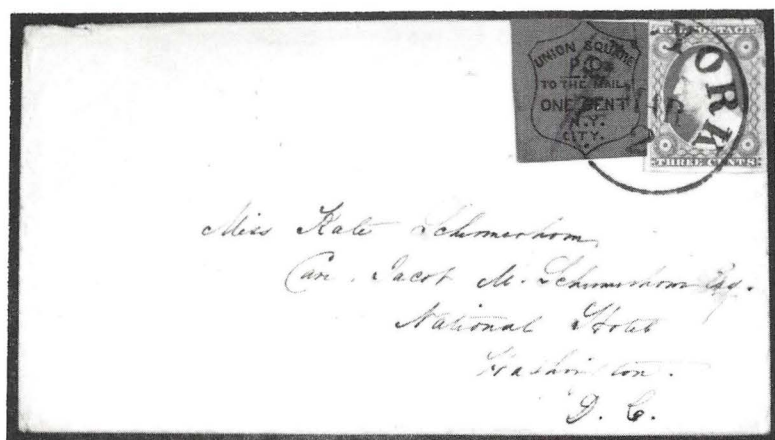 UNION SQUARE
P.O.
TO THE MAILS
ONE CENT
N.Y.
CITY.
U.S. POSTAGE
THREE CENTS
YORK
Miss Kate Schermerhorn,
Care. Jacob M. Schermerhorn Esq.
National Hotel
Washington.
D. C.